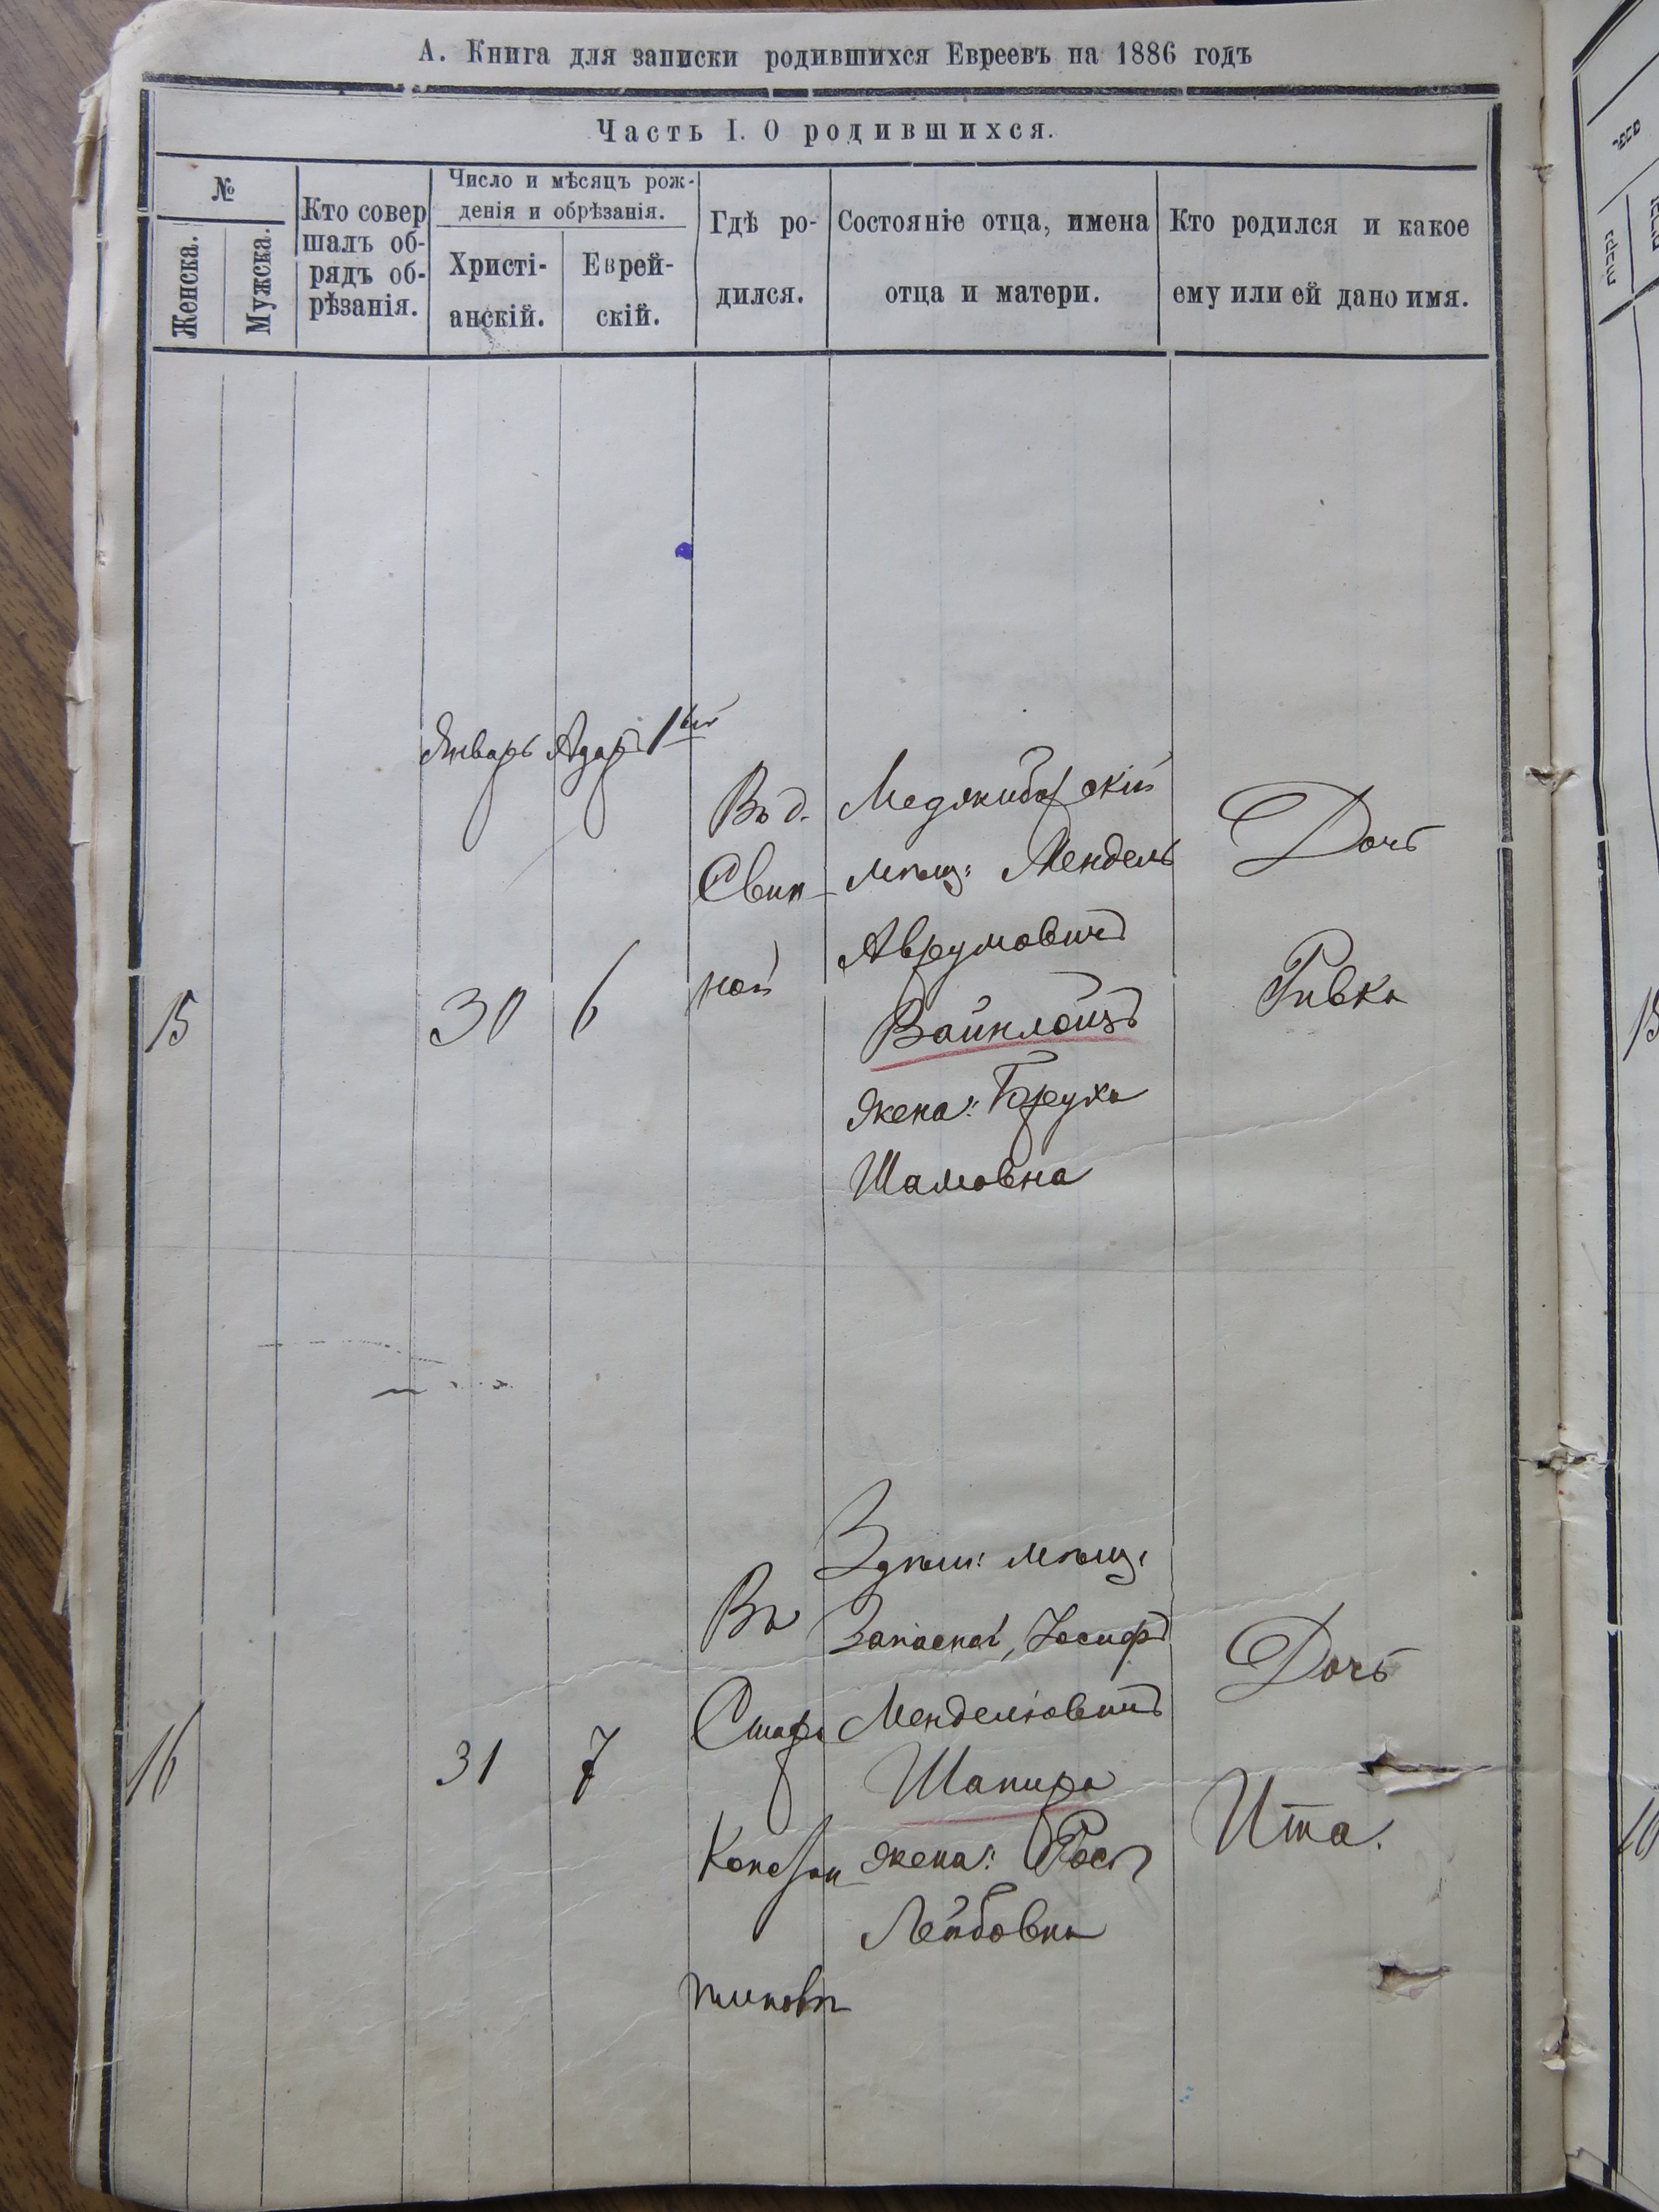 А. Книга для записки родившихся Евреевъ на 1886 годъ
Часть I. О родившихся.
№
Женска.
Мужска.
Кто совер
шалъ об-
рядъ об-
рѣзанія.
Число и мѣсяцъ рож-
денія и обрѣзанія.
Христі-
анскій.
Еврей-
скій.
Гдѣ ро-
дился.
Состояніе отца, имена
отца и матери.
Кто родился и какое
ему или ей дано имя.
Январь Адаръ 1ый
15
30
6
Въ д.
Свин-
ной
Меджибожскій
мѣщ: Мендель
Аврумовичъ
Вайнлойзъ
жена: Бруха
Шамовна
Дочь
Ривка
16
31
7
Въ
Старо
Констан-
тиновѣ
мѣщ:
Запасной, Іосифъ
Менделіовичъ
Шапира
жена: Рося
Лейбовна
Дочь
Ита.